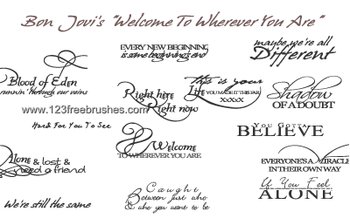 Bon Jovi's "Welcome To Wherever You Are"
EVERY NEW BEGINNING
is some beginning's end
maybe we're all
Different
Blood of Eden
runnin' through our veins
Right here
Right now
This is your
Life
xoxox
Shadow
OF A DOUBT
www.123freebrushes.com
Hard For You To See
Welcome
TO WHEREVER YOU ARE
You Gotta
BELIEVE
Alone & lost &
need a friend
EVERYONE'S A MIRACLE
IN THEIR OWN WAY
We're still the same
Caught
Between just who
& who you want to be
If You Feel
ALONE